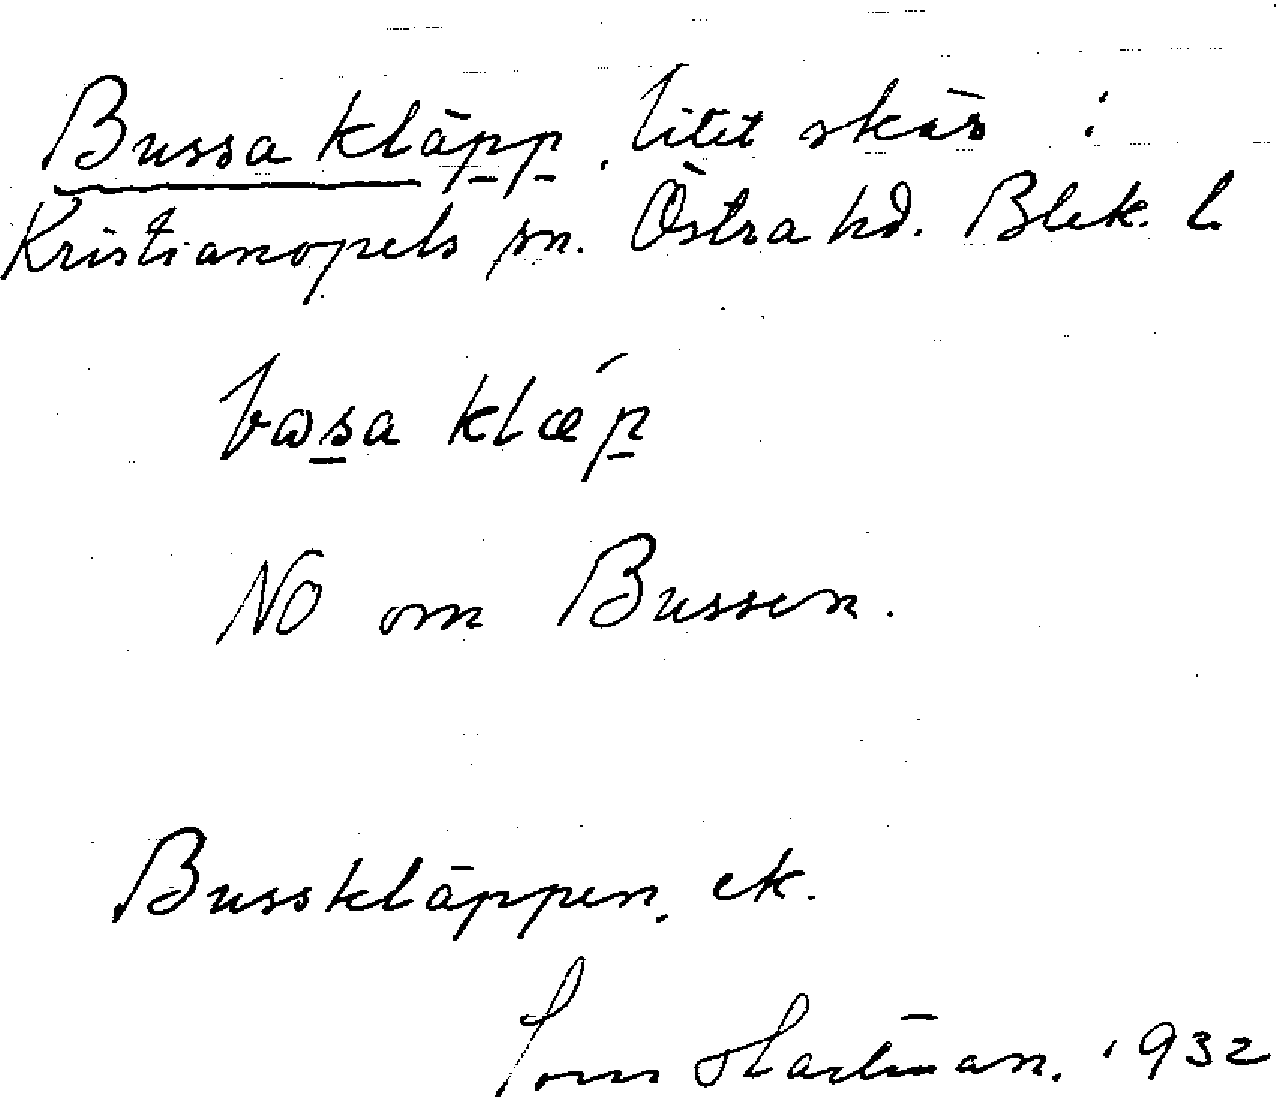 Bussa kläpp. litet skär i
Kristianopels sn. Östra hd. Blek. l.
bɷsa klæ´p
NO om Bussen.
Busskläppen, ek.
Hartman. 1932